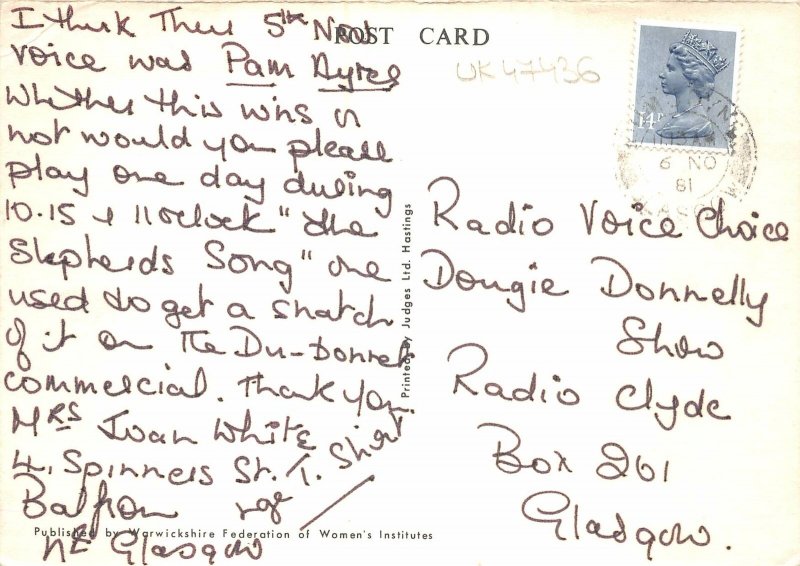 I think Thurs 5th Nov
voice was Pam Ayres
whether this wins or
not would you please
play one day during
10.15 & 11 o'clock "the
Shepherds Song" one
used to get a snatch
of it on The Du-Donnet
commercial. Thank you.
Mrs Ivan White
4, Spinners St. T. Shirt
Balfron
nr Glasgow
POST CARD
UK47436
14P
6 NO
81
Radio Voice Choice
Dougie Donnelly
Show
Radio Clyde
Box 261
Glasgow.
Printed by Judges Ltd. Hastings
Published by Warwickshire Federation of Women's Institutes